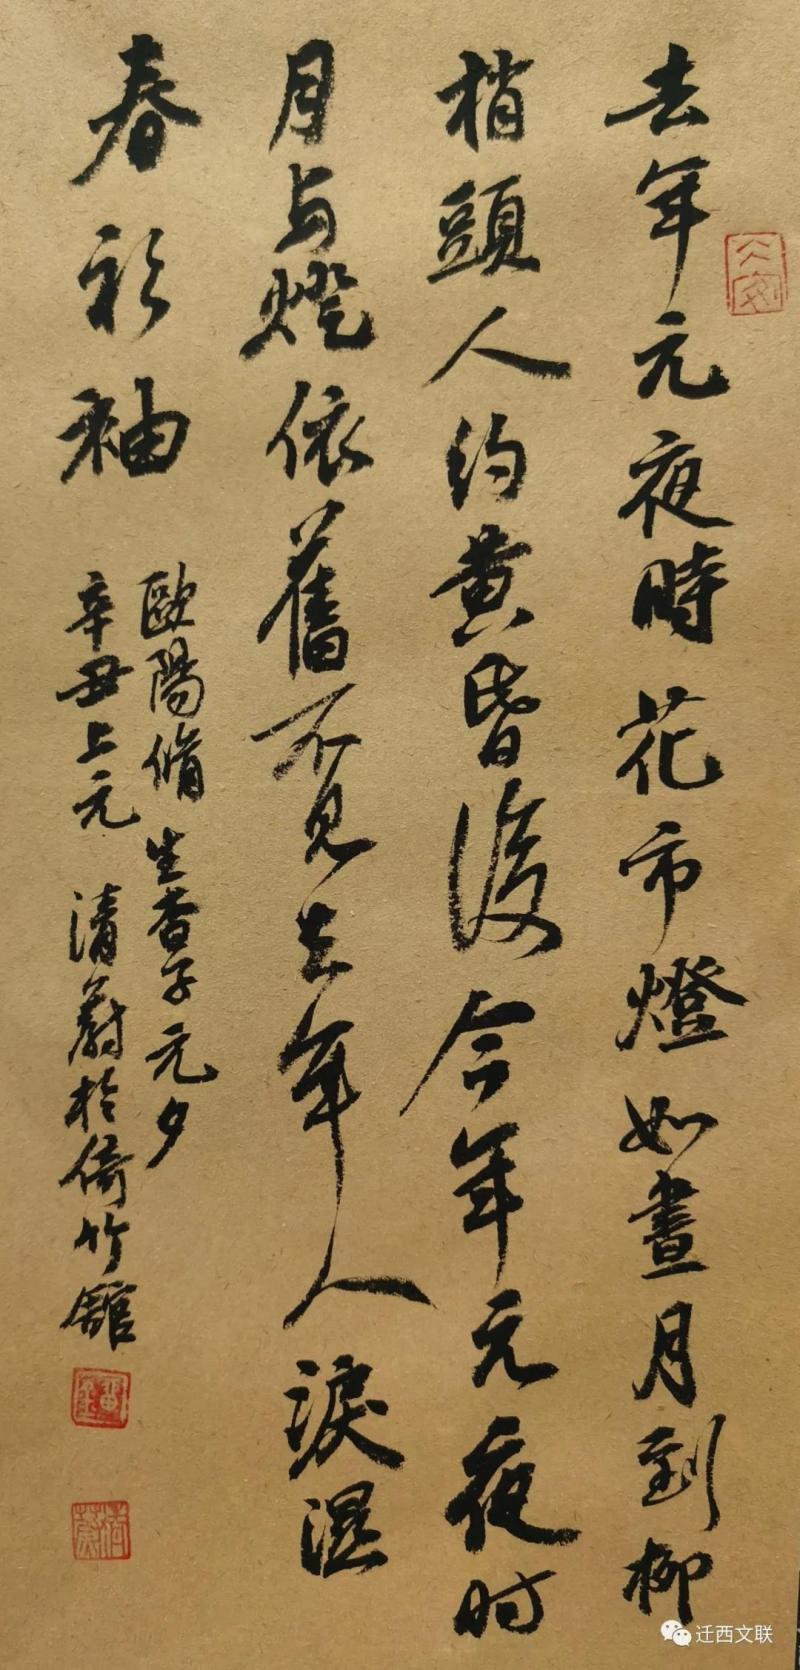 去年元夜時花市燈如晝月到柳
梢頭人約黄昏後今年元夜时
月与燈依舊不見去年人淚濕
春衫袖
歐陽脩生查子元夕
辛丑上元清蔚於倚竹館
迁西文联